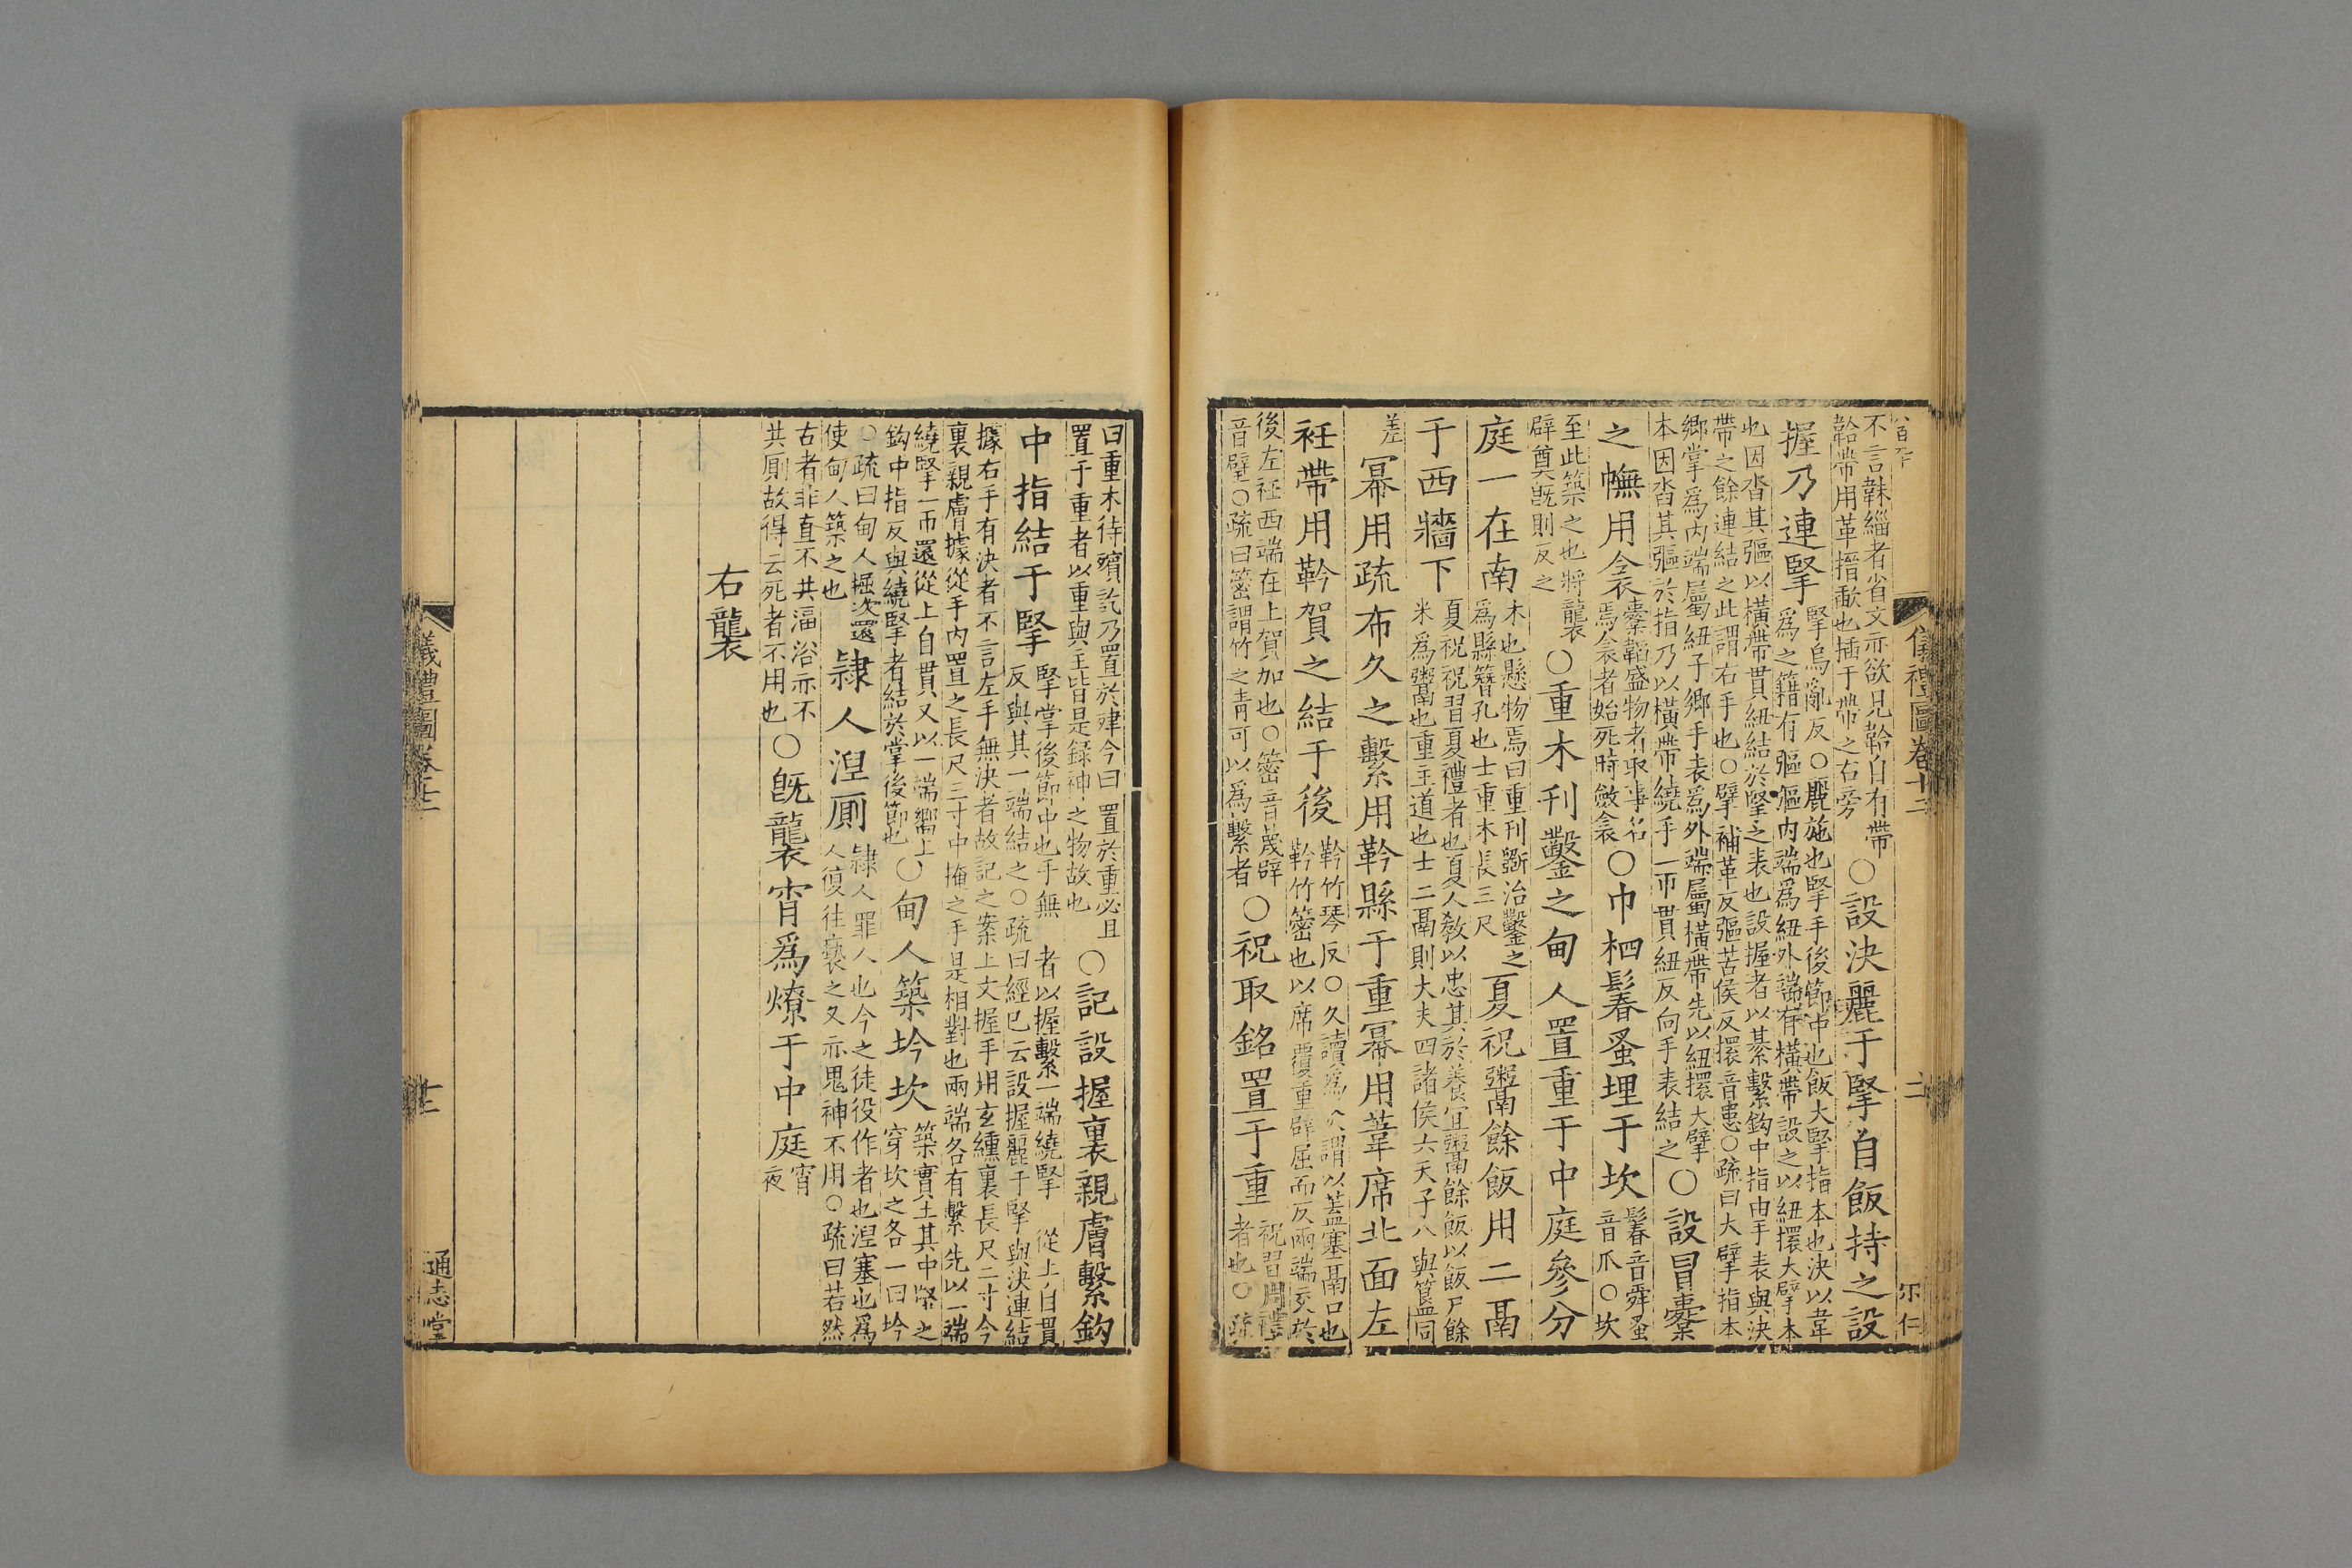 儀禮圖卷十二
不言韎緇者省文亦欲見韐自有帶
韐帶用革搢㪜也插于帶之右旁
○設決麗于掔自飯持之設
握乃連掔
掔烏亂反○麗施也掔手後節中也飯大掔指本也決以韋
為之籍有彄彄内端為紐外端有橫帶設之以紐擐大擘本
也因沓其彄以橫帶貫紐結於掔之表也設握者以綦繫鉤中指由手表與決
帶之餘連結之此謂右手也○擘補革反彄苦侯反擐音患○疏曰大擘指本
鄉掌為内端屬紐子鄉手表為外端屬橫帶先以紐擐大擘
本因沓其彄於指乃以橫帶繞手一帀貫紐反向手表結之
○設冒櫜
之幠用衾
櫜韜盛物者取事名
焉衾者始死時斂衾
○巾柶鬊蚤埋于坎
鬊音舜蚤
音爪○坎
至此築之也將襲
辟奠既則反之
○重木刊鑿之甸人置重于中庭參分
庭一在南
木也懸物焉曰重刊斲治鑿之
為縣簪孔也士重木長三尺
夏祝鬻餘飯用二鬲
于西牆下
夏祝祝習夏禮者也夏人敎以忠其於養宜鬻餘飯以飯尸餘
米為鬻也重主道也士二鬲則大夫四諸侯六天子八與簋同
差
冪用疏布久之繫用靲縣于重冪用葦席北面左
衽帶用靲賀之結于後
靲竹琴反○久讀為灸謂以蓋塞鬲口也
靲竹䉲也以席覆重辟屈而反兩端交於
後左衽西端在上賀加也○䉲音蔑辟
音壁○疏曰䉲謂竹之青可以為繫者
○祝取銘置于重
祝習周禮
者也○疏
曰重木待殯訖乃置於肂今曰置於重必且
置于重者以重與主皆是錄神之物故也
○記設握裏親膚繫鉤
中指結于掔
掔掌後節中也手無者以握繫一端繞掔從上自貫
反與其一端結之○疏曰經已云設握麗于掔與決連結
據右手有決者不言左手無決者故記之案上文握手用玄纁裏長尺二寸今
裏親膚據從手内置之長尺三寸中掩之手是相對也兩端各有繫先以一端
繞掔一帀還從上自貫又以一端鄉上
鉤中指反與繞掔者結於掌後節也
○甸人築坅坎
築實土其中堅之
穿坎之名一曰坅
○疏曰甸人掘次還
使甸人築之也
隷人涅廁
隷人罪人也今之徒役作者也涅塞也為
人復往褻之又亦鬼神不用○疏曰若然
古者非直不共湢浴亦不
共廁故得云死者不用也
○既襲宵為燎于中庭
宵
夜
右襲
儀禮圖卷十二
通志堂